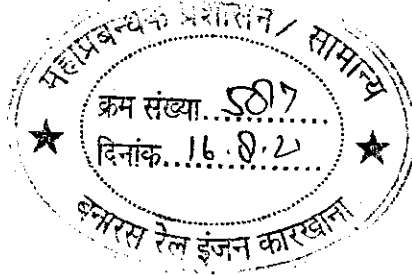 महाप्रबन्धक प्रशासन / सामान्य
क्रम संख्या.. 5817
दिनांक.. 16.8.21
बनारस रेल इंजन कारखाना